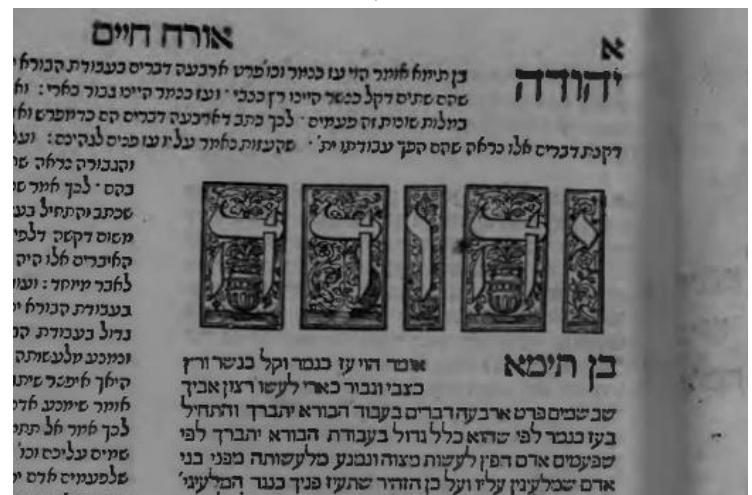 א
אורח חיים
יהודה
בן תימא אומר הוי עז כנמר וכו' פרט ארבעה דברים בעבודת הבורא
שהם שתים דקל כנשר היינו רץ כצבי · ועז כנמר היינו גבור כארי :
במלות שונות זה פעמים · לכך כתב דארבעה דברים הם כדמפרש
דקשת דברים אלו נראה שהם הפך עבודתו ית' · שהעזות כאמר עליו עז פנים לגיהנם :
יהודה
בן תימא
אומר הוי עז כנמר וקל כנשר ורץ
כצבי וגבור כארי לעשו' רצון אביך
שבשמים פרט ארבעה דברים בעבוד' הבורא יתברך והתחיל
בעז כנמר לפי שהוא כלל גדול בעבודת הבורא יתברך לפי
שפעמים אדם חפץ לעשות מצוה ונמנע מלעשותה מפני בני
אדם שמלעיגין עליו ועל כן הזהיר שתעיז פניך כנגד המלעיגי'
והגבורה נראה
בהם · לכך אמר
שכתב והתחיל
משום דקשה דלפי
האיברים אלו היה
לאבר מיוחד :
בעבודת הבורא
גדול בעבודת
ונמנע מלעשותה
היאך איפשר
אומר שימנע
לכך אמר אל
שמים עליכם וכו'
שלפעמים אדם